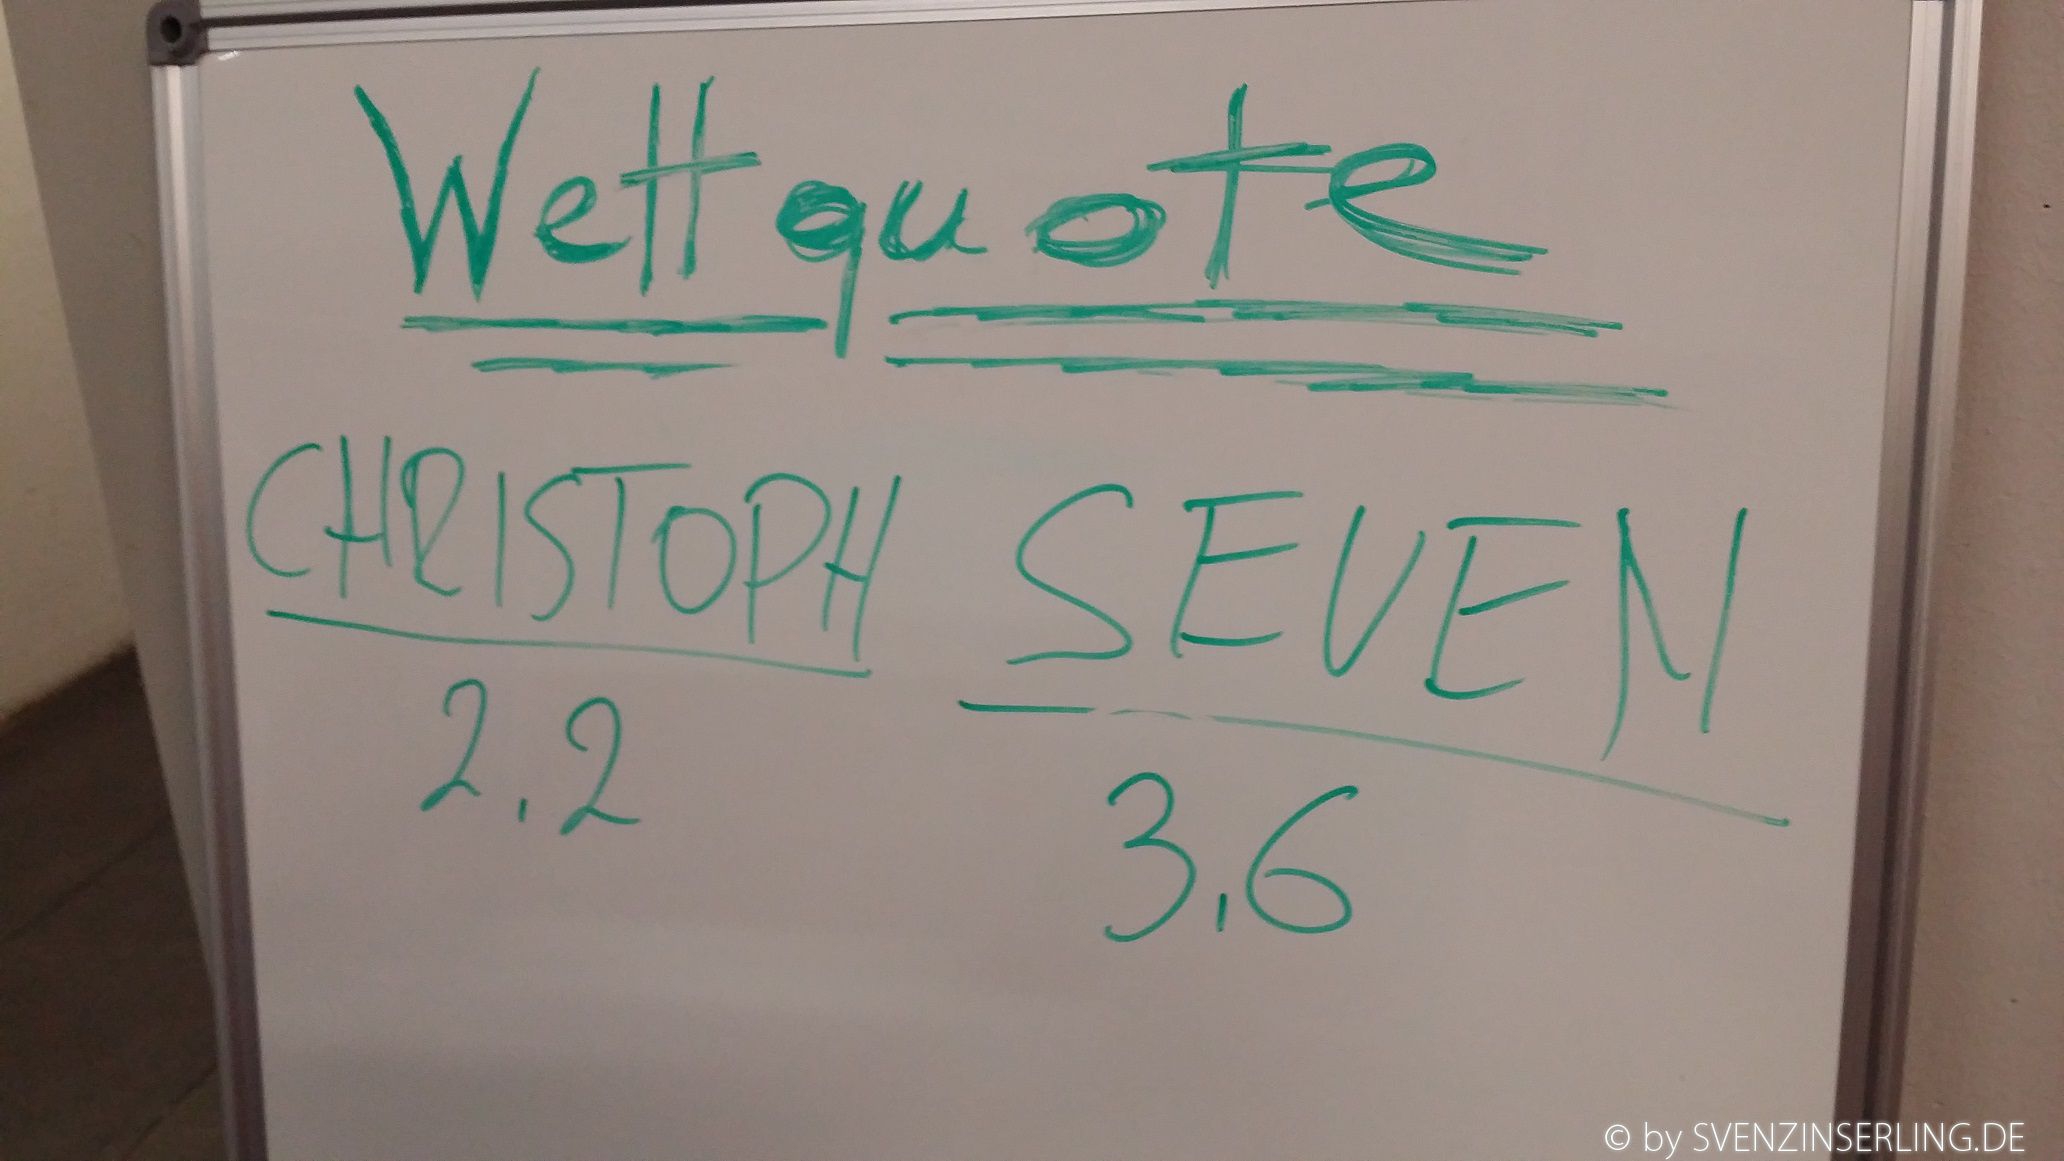 Wettquote
CHRISTOPH SEVEN
2.2 3.6
© by SVENZINSERLING.DE